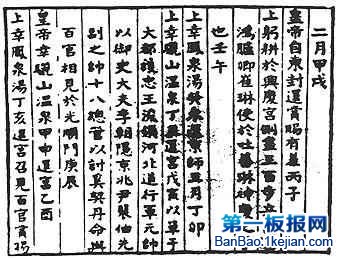 二月甲戌
皇帝自東封還賞賜有差丙子
上躬耕於興慶宮側盡三百步
鴻臚卿崔琳使於吐蕃琳
也壬午
上幸鳳泉湯癸未還京師三月丁卯
上幸驪山溫泉丁還宮戊寅以單于
大都護忠王浚領河北道行軍元帥
以御史大夫李朝隱京兆尹裴伷先
副之帥十八總管以討奚契丹命與
百官相見於光明門庚辰
皇帝幸驪山溫泉甲申還宮乙酉
上幸鳳泉湯丁亥還宮召見百官賞賜
第一板报网
BanBao.1kejian.com